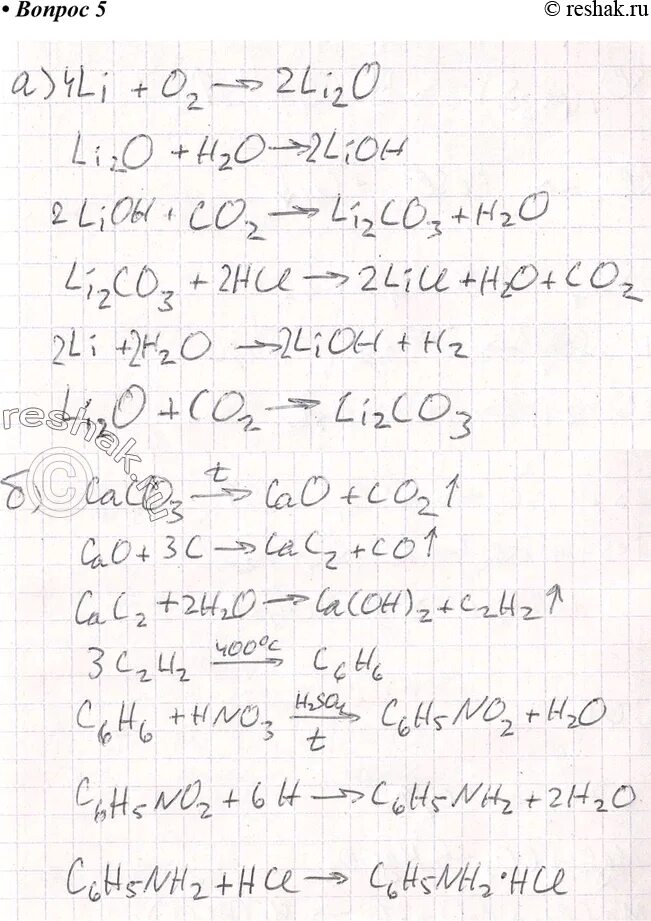 • Вопрос 5 © reshak.ru
а) 4Li + O₂ → 2Li₂O
Li₂O + H₂O → 2LiOH
2LiOH + CO₂ → Li₂CO₃ + H₂O
Li₂CO₃ + 2HCl → 2LiCl + H₂O + CO₂
2Li + 2H₂O → 2LiOH + H₂
Li₂O + CO₂ → Li₂CO₃
reshak.ru
©
б) CaCO₃ →(t) CaO + CO₂↑
CaO + 3C → CaC₂ + CO↑
CaC₂ + 2H₂O → Ca(OH)₂ + C₂H₂↑
3C₂H₂ →(400°C) C₆H₆
C₆H₆ + HNO₃ →(H₂SO₄, t) C₆H₅NO₂ + H₂O
C₆H₅NO₂ + 6H → C₆H₅NH₂ + 2H₂O
C₆H₅NH₂ + HCl → C₆H₅NH₂·HCl